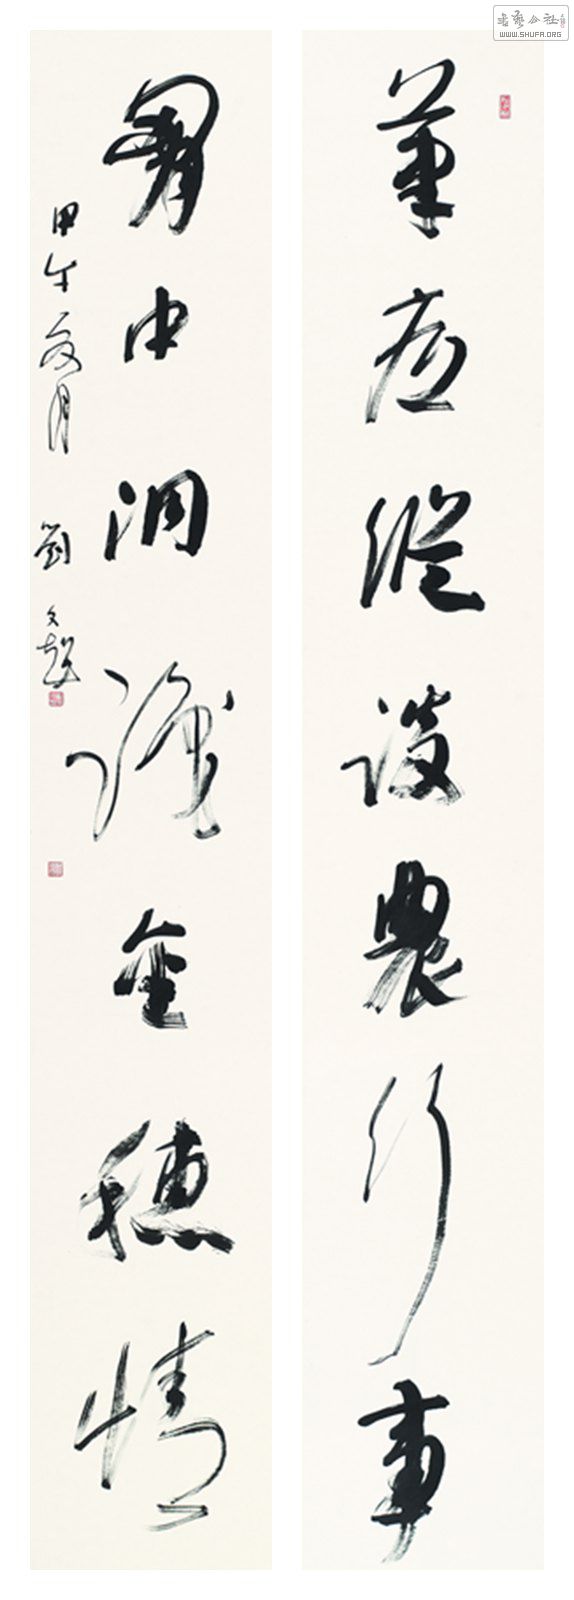 筆底縱談農行事
胸中洞識金穗情
甲午夏月 劉文
書藝公社
WWW.SHUFA.ORG